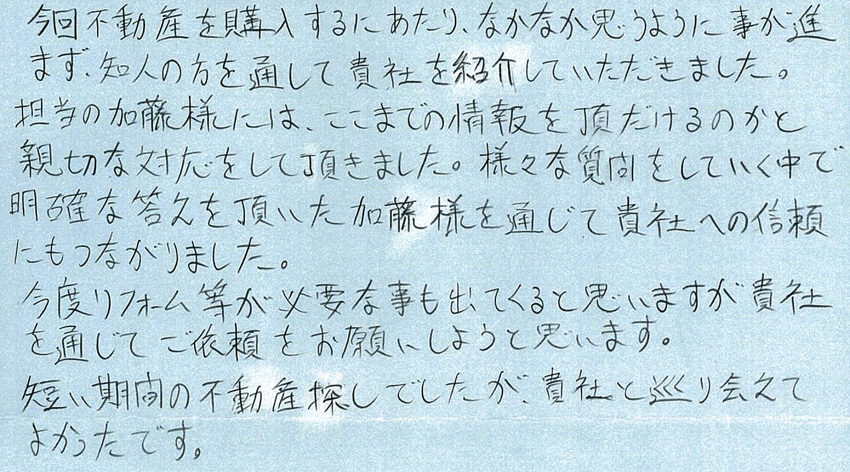 今回不動産を購入するにあたり、なかなか思うように事が進
まず、知人の方を通して貴社を紹介していただきました。
担当の加藤様には、ここまでの情報を頂だけるのかと
親切な対応をして頂きました。様々な質問をしていく中で
明確な答えを頂いた加藤様を通じて貴社への信頼
にもつながりました。
今度リフォーム等が必要な事も出てくると思いますが貴社
を通じてご依頼をお願いしようと思います。
短い期間の不動産探しでしたが、貴社と巡り会えて
よかったです。